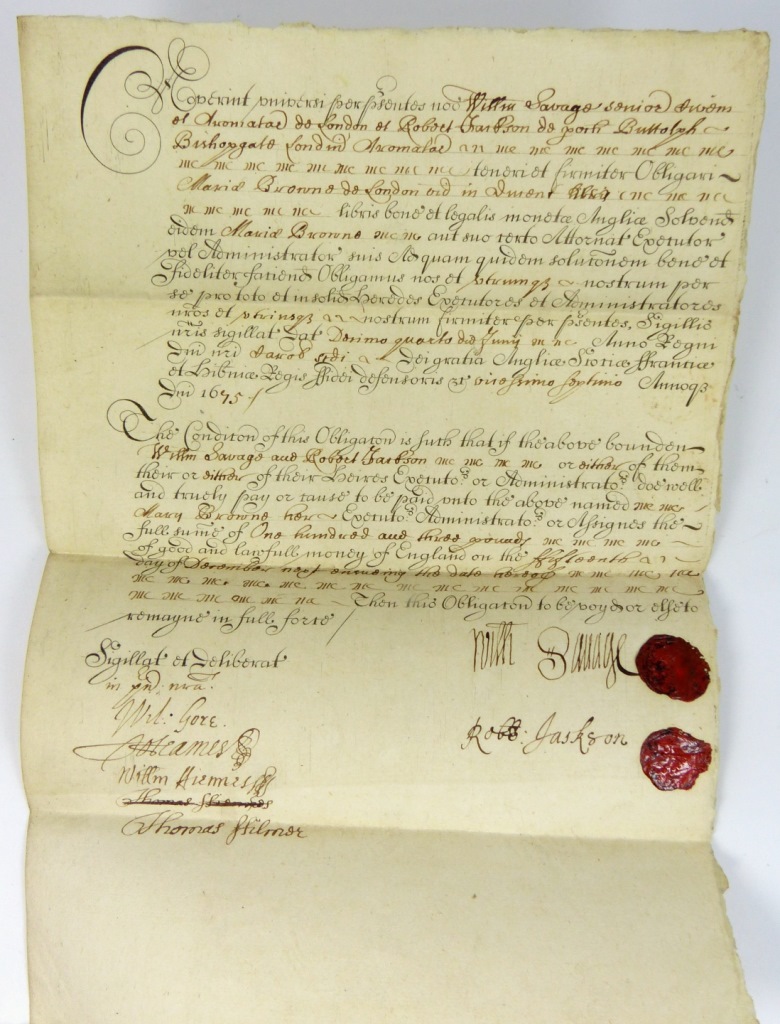 Noverint universi per presentes nos Willm Savage senior Civem
et Aromatar de London et Robert Jackson de poch Buttolph
Bishopgate London Aromatar
teneri et firmiter Obligari
Mariæ Browne de London vid in Ducent
libris bonæ et legalis monetæ Angliæ Solvend
eidem Mariæ Browne aut suo certo Attornat Executor
vel Administrator suis Ad quam quidem solutionem bene et
fideliter faciend Obligamus nos et utrumqz nostrum per
se pro toto et in solid Heredes Executores et Administratores
nros et utriusqz nostrum firmiter per psentes, Sigillis
nris sigillat Dat Decimo quarto die Anno Regni
Dni nri Dei gratia Angliæ Scotiæ ffranciæ
et Hibniæ Regis ffidei defensoris &c vicessimo septimo Annoqz
Dni 1675
The Condicon of this Obligacon is such that if the above bounden
Willm Savage and Robert Jackson or either of them
their or either of their Heires Executors or Administrators doe well
and truely pay or cause to be paid unto the above named
Mary Browne her Executors Administrators or Assignes the
full summe of One hundred and three pounds
of good and lawfull money of England on the fifteenth
day of December next ensuing the date hereof
Then this Obligacon to be voyd or else to
remayne in full force
Sigillat et deliberat
in
Willm Savage
Wil: Gore.
Robt: Jackson
Willm
Thomas Stilmer